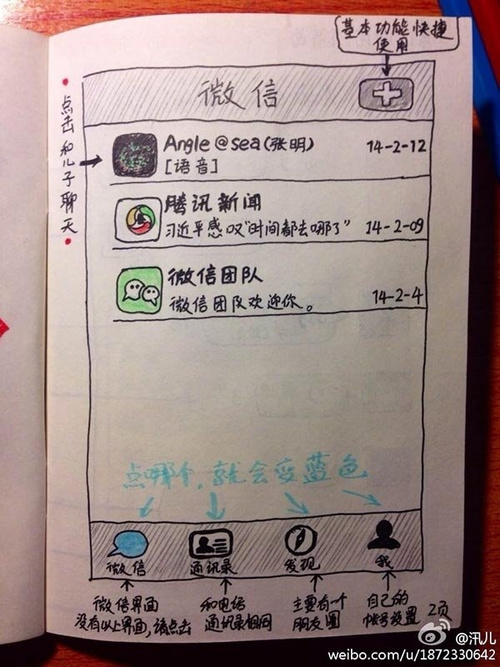 基本功能快捷
使用
微信
点击和儿子聊天
Angle@sea(张明)
14-2-12
[语音]
腾讯新闻
习近平感叹“时间都去哪了”
14-2-09
微信团队
微信团队欢迎你。
14-2-4
点哪个,就会变蓝色
微信
通讯录
发现
我
微信界面
没有以上界面,请点击
和电话
通讯录相同
主要有一个
朋友圈
自己的
帐号设置
2页
@汛儿
weibo.com/u/1872330642